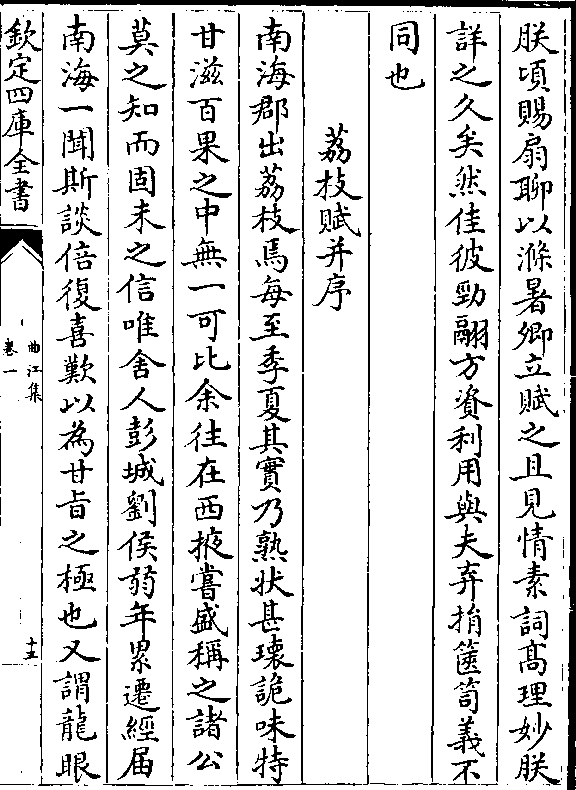 朕頃賜扇聊以滌暑卿立賦之且見情素詞髙理妙朕
詳之久矣然佳彼勁翮方資利用與夫弃捐篋笥義不
同也
荔枝賦并序
南海郡出荔枝焉每至季夏其實乃熟狀甚瓌詭味特
甘滋百果之中無一可比余往在西掖嘗盛稱之諸公
莫之知而固未之信唯舍人彭城劉侯弱年累遷經届
南海一聞斯談倍復喜歎以為甘旨之極也又謂龍眼
欽定四庫全書
曲江集
卷一
十三